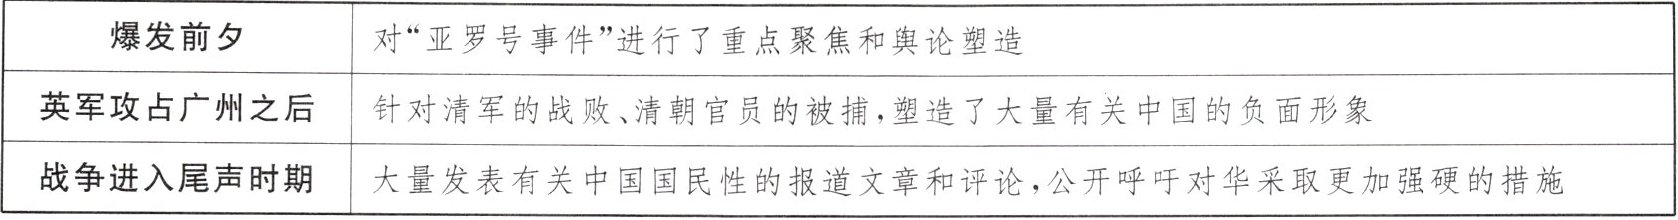 爆发前夕 对“亚罗号事件”进行了重点聚焦和舆论塑造
英军攻占广州之后 针对清军的战败、清朝官员的被捕,塑造了大量有关中国的负面形象
战争进入尾声时期 大量发表有关中国国民性的报道文章和评论,公开呼吁对华采取更加强硬的措施